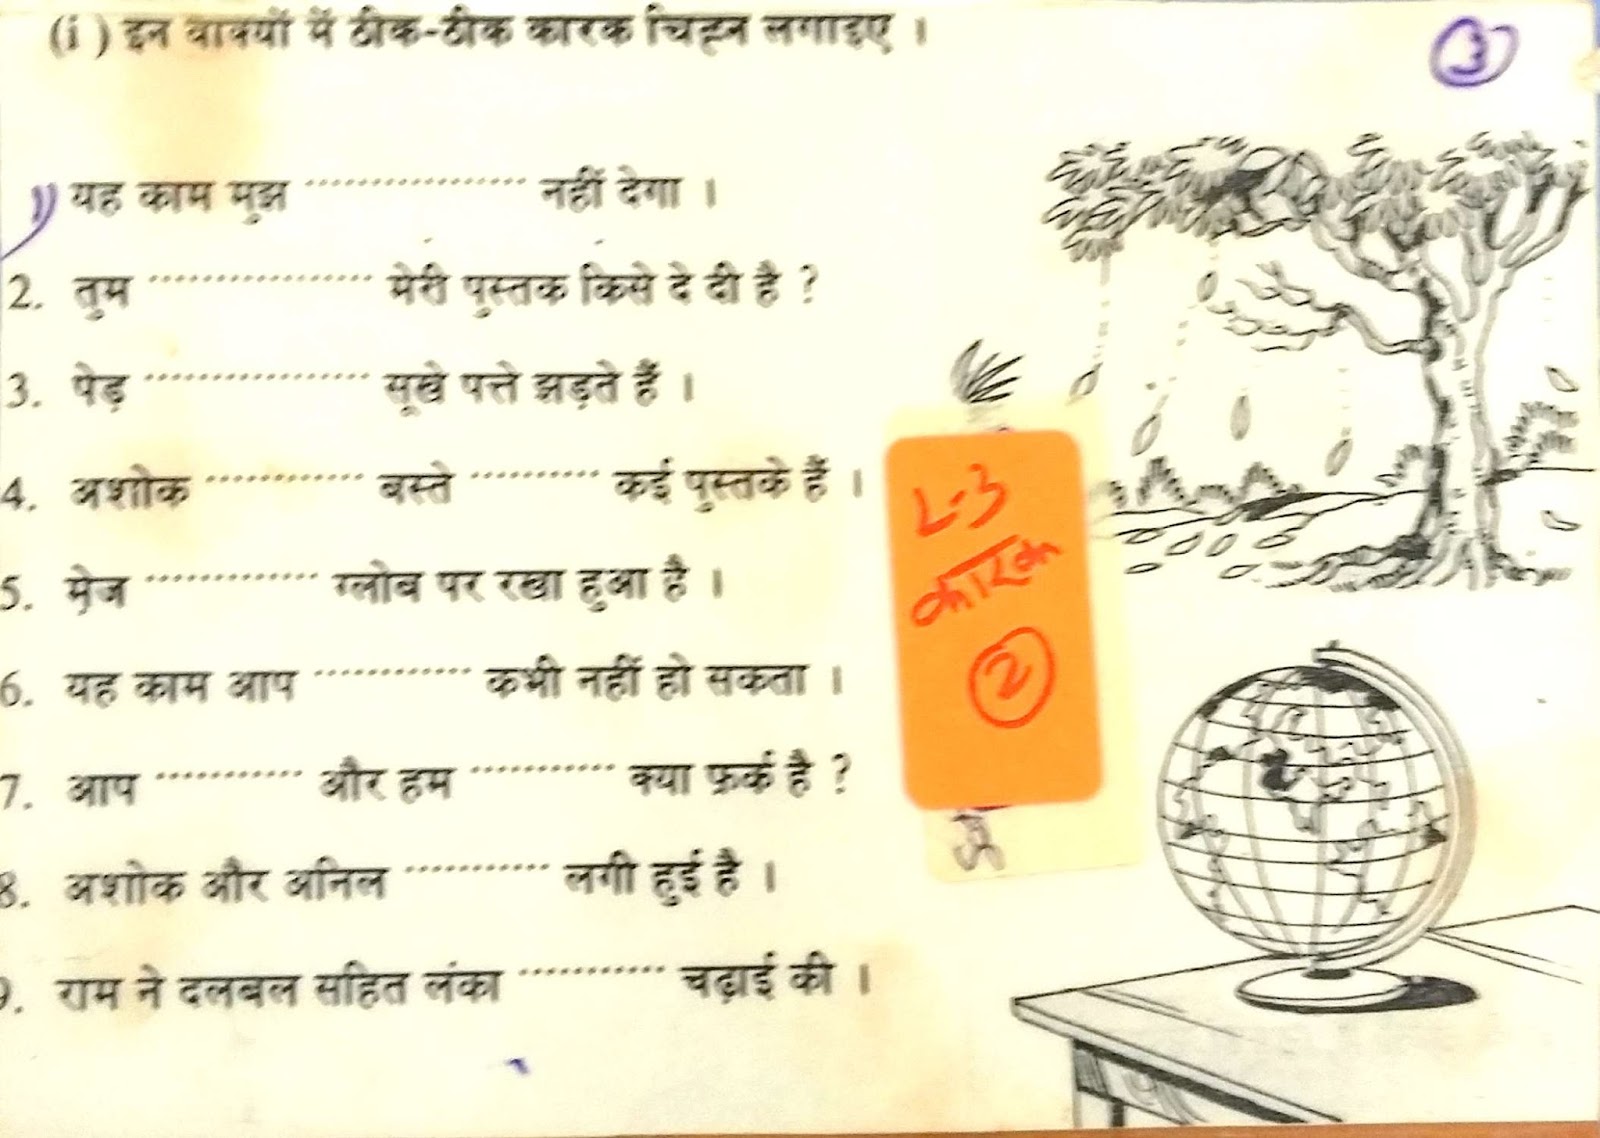 (i) इन वाक्यों में ठीक-ठीक कारक चिह्न लगाइए ।
3
1) यह काम मुझ ........................ नहीं देगा ।
2. तुम ........................ मेरी पुस्तक किसे दे दी है ?
3. पेड़ ........................ सूखे पत्ते झड़ते हैं ।
4. अशोक ................ बस्ते ............. कई पुस्तके हैं ।
5. मेज .................. ग्लोब पर रखा हुआ है ।
6. यह काम आप ................ कभी नहीं हो सकता ।
7. आप ............... और हम ............... क्या फ़र्क है ?
8. अशोक और अनिल ............... लगी हुई है ।
9. राम ने दलबल सहित लंका ............... चढ़ाई की ।
L-3
कारक
2